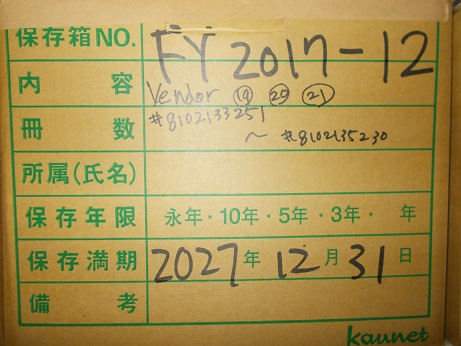 保存箱NO. FY 2017-12
内容 Vendor ⑲ ⑳ ㉑
冊数 #8102133251
～ #8102135230
所属(氏名)
保存年限 永年・10年・5年・3年・ 年
保存満期 2027年 12月 31日
備考
kaunet